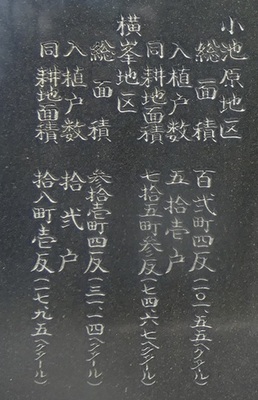 小池原地区
総面積 百弐町四反(一〇一.五五ヘクタール)
入植戸数 五拾壱戸
同耕地面積 七拾五町参反(七四.六七ヘクタール)
横峯地区
総面積 参拾壱町四反(三一.一四ヘクタール)
入植戸数 拾弐戸
同耕地面積 拾八町壱反(一七.九五ヘクタール)